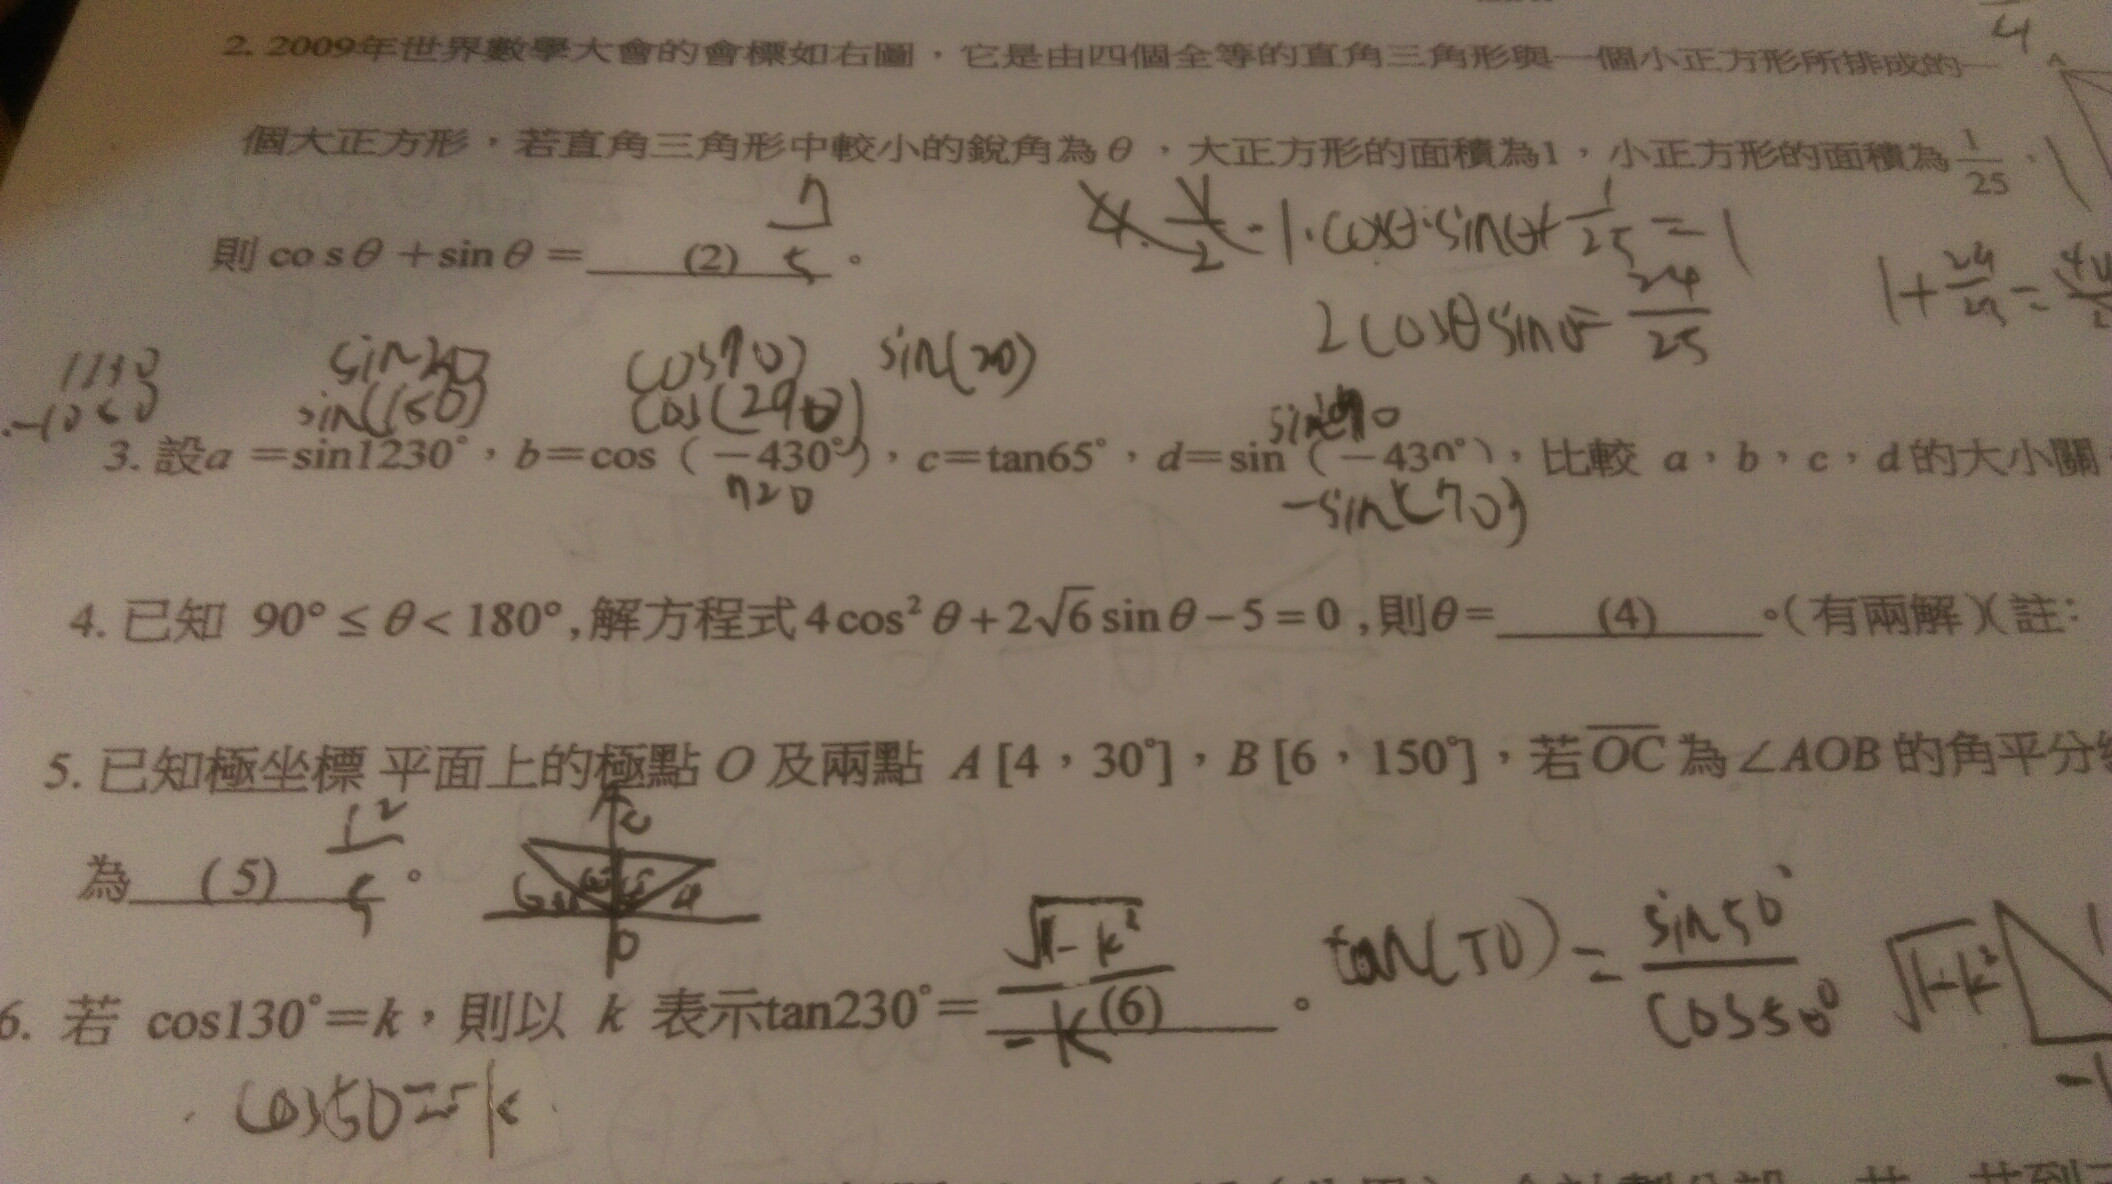 4
2. 2009年世界數學大會的會標如右圖，它是由四個全等的直角三角形與一個小正方形所排成的一
個大正方形，若直角三角形中較小的銳角為θ，大正方形的面積為1，小正方形的面積為 1/25，
則 cosθ + sinθ = (2) 7/5 。
·1·cosθ·sinθ + 1/25 = 1
2cosθsinθ = 24/25
1 + 24/25 =
sin30 cos70) sin(20)
sin(150) cos(290)
sin290
3. 設a＝sin1230°，b＝cos（－430°），c＝tan65°，d＝sin（－430°），比較 a，b，c，d的大小關
720 -sin(70)
4. 已知 90° ≤ θ < 180°,解方程式4cos²θ+2√6 sinθ−5=0,則θ= (4) 。(有兩解)(註:
5. 已知極坐標 平面上的極點 O 及兩點 A [4，30°]，B [6，150°]，若OC 為∠AOB 的角平分
為 (5) 12/5 。
C
6 60 4
O
6. 若 cos130°＝k，則以 k 表示tan230°＝ (6) √1-k² / -k 。 tan(50) = sin50° / cos50° √1-k² 1
cos50=-k